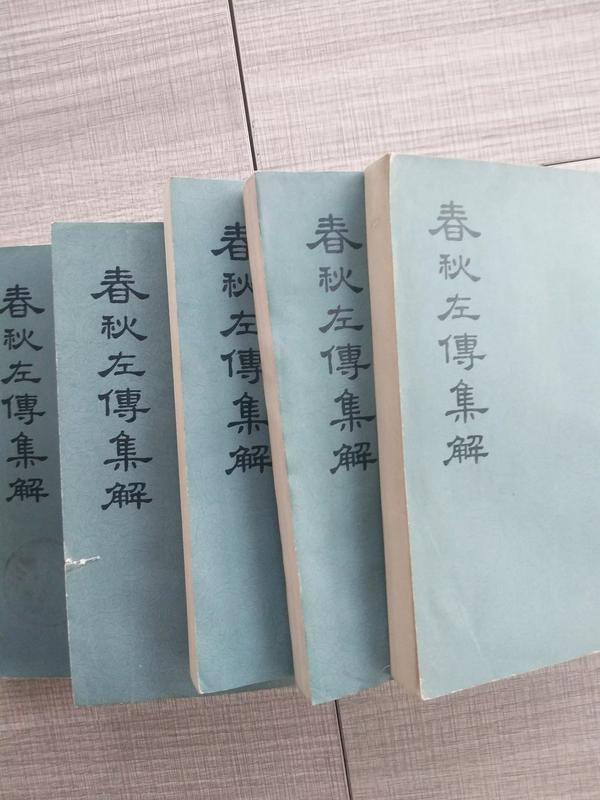 春秋左傳集解
春秋左傳集解
春秋左傳集解
春秋左傳集解
春秋左傳集解